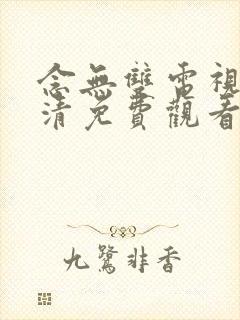 念無雙電視
清免費觀看
九鷺非香